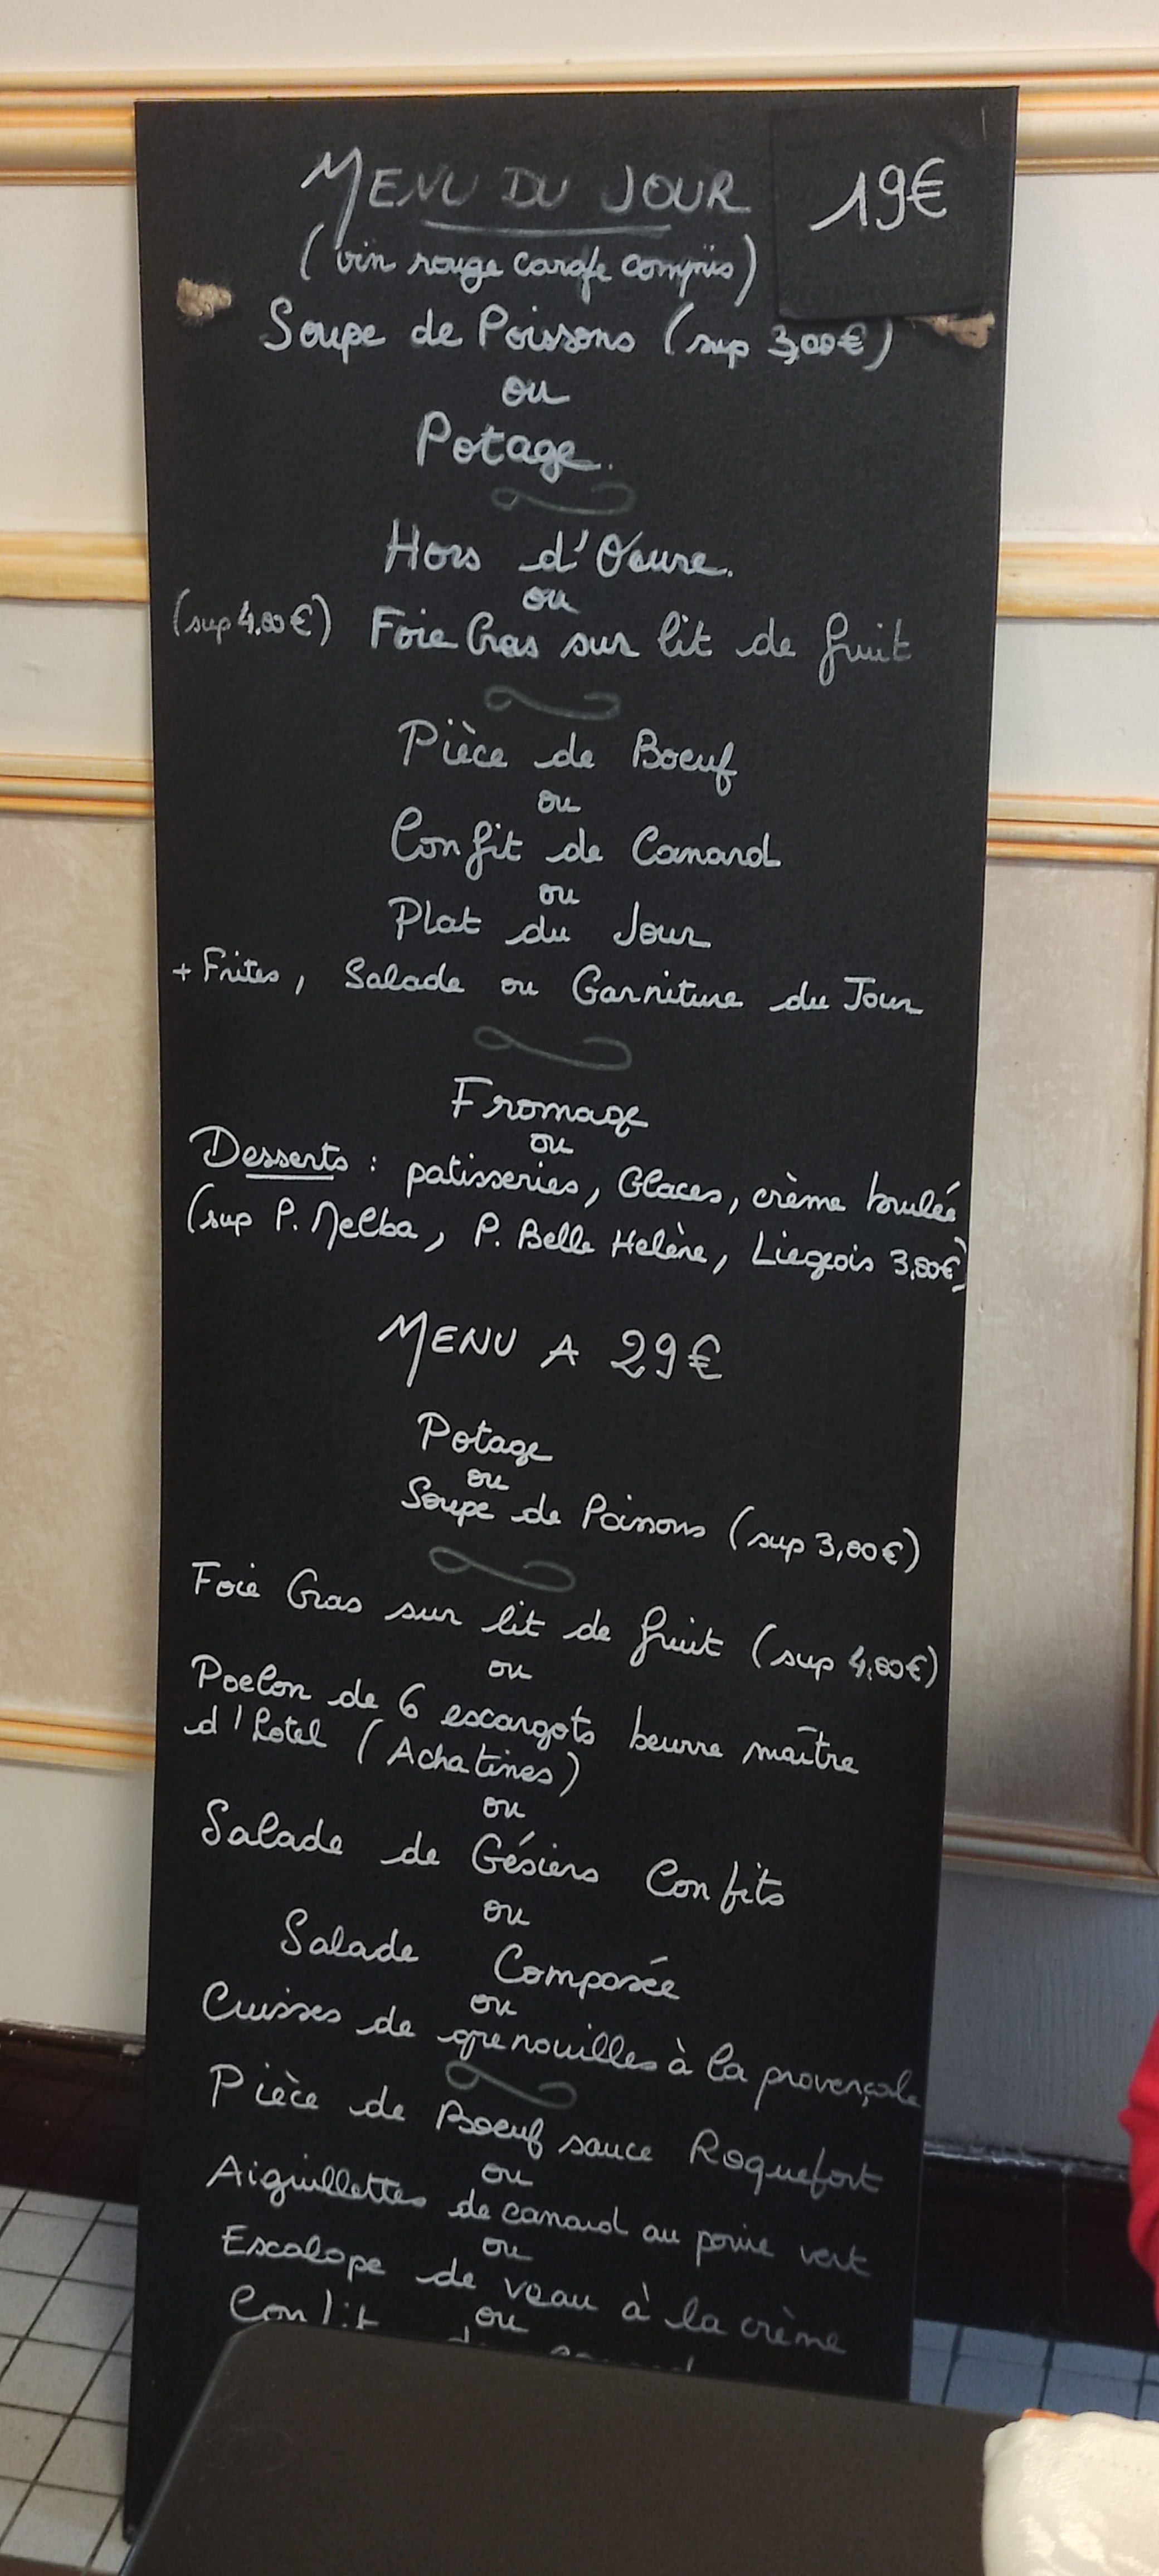 MENU DU JOUR 19€
(vin rouge carafe compris)
Soupe de Poissons (sup 3,00€)
ou
Potage.
Hors d'Oeuvre.
ou
(sup 4,00€) Foie Gras sur lit de fruit
Pièce de Boeuf
ou
Confit de Canard
ou
Plat du Jour
+ Frites, Salade ou Garniture du Jour
Fromage
ou
Desserts : patisseries, Glaces, crème brulée
(sup P. Melba, P. Belle Helène, Liegeois 3,00€)
MENU A 29€
Potage
ou
Soupe de Poissons (sup 3,00€)
Foie Gras sur lit de fruit (sup 4,00€)
ou
Poelon de 6 escargots beurre maître
d'hotel (Achatines)
ou
Salade de Gésiers Confits
ou
Salade Composée
ou
Cuisses de grenouilles à la provençale
Pièce de Boeuf sauce Roquefort
ou
Aiguillettes de canard au poivre vert
ou
Escalope de veau à la crème
ou
Confit de canard